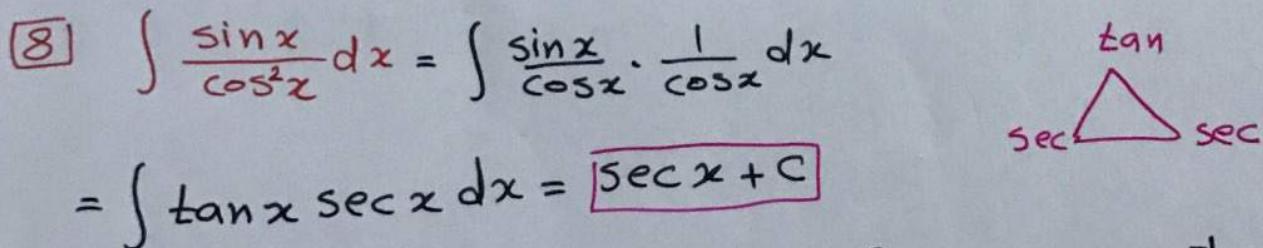 8 ∫ sinx/cos²x dx = ∫ sinx/cosx · 1/cosx dx
tan
sec sec
= ∫ tanx secx dx = secx + C